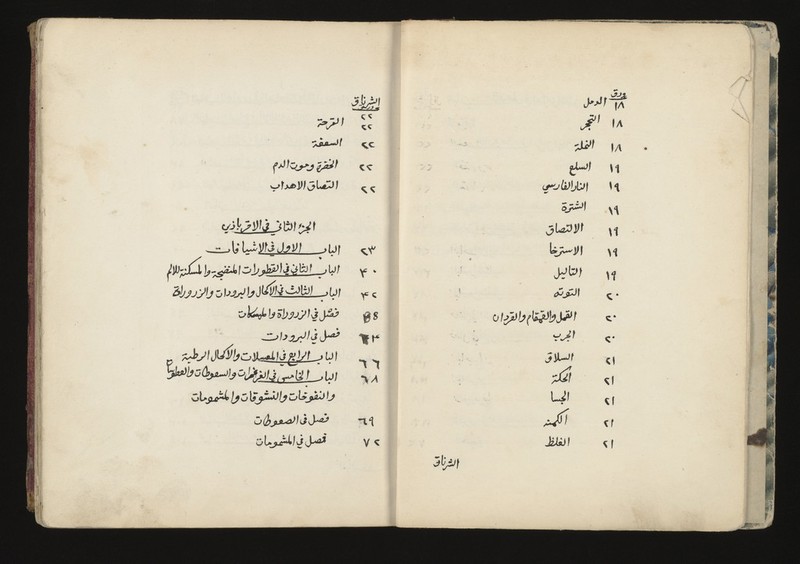 ورق
١٨ الدمل
١٨ التحجر
١٨ النملة
١٩ السلع
١٩ النار الفارسي
١٩ الشترة
١٩ الالتصاق
١٩ الاسترخا
١٩ الثاليل
٢٠ التوته
٢٠ القمل والقمقام والقردان
٢٠ الجرب
٢١ السلاق
٢١ الحكة
٢١ الجسا
٢١ الكمنه
٢١ الغلظ
الشرناق
الشرناق
٢٢
٢٢ القرحة
٢٢ السعفة
٢٢ الخضرة وموت الدم
٢٢ التصاق الاهداب
الجزء الثاني في الاقرباذين
٢٣ الباب الاول في الاشيافات
٤٠ الباب الثاني في القطورات المنضجة والمسكنة للالم
٤٢ الباب الثالث في الاكحال والبرودات والزرورات
فصل في الزرورات
٦٤ فصل في البرودات
٦٦ الباب الرابع في والاكحال الرطبة
٦٨ الباب الخامس في الغرغرات والسعوطات والعطوسات
والنفوخات والنشوقات والمشمومات
٦٩ فصل في الصعوطات
٧٢ فصل في المشمومات